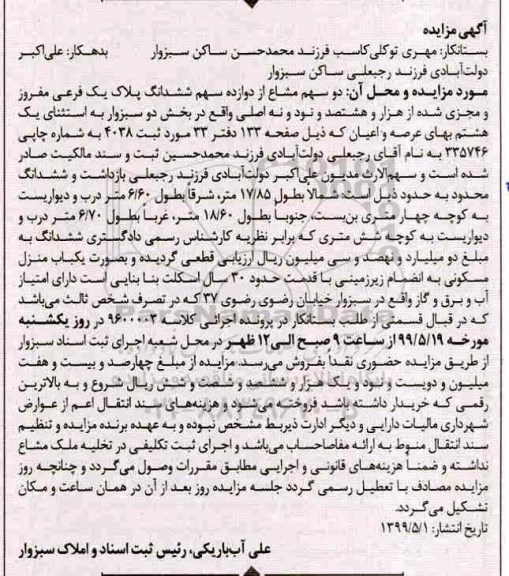 آگهی مزایده
بستانکار: مهری توکلی‌کاسب فرزند محمدحسن ساکن سبزوار بدهکار: علی‌اکبر
دولت‌آبادی فرزند رجبعلی ساکن سبزوار
مورد مزایده و محل آن: دو سهم مشاع از دوازده سهم ششدانگ پلاک یک فرعی مفروز
و مجزی شده از هزار و هشتصد و نود و نه اصلی واقع در بخش دو سبزوار به استثنای یک
هشتم بهای عرصه و اعیان که ذیل صفحه ۱۳۳ دفتر ۳۳ مورد ثبت ۴۰۳۸ به شماره چاپی
۳۳۵۷۴۶ به نام آقای رجبعلی دولت‌آبادی فرزند محمدحسین ثبت و سند مالکیت صادر
شده است و سهم‌الارث مدیون علی‌اکبر دولت‌آبادی فرزند رجبعلی بازداشت و ششدانگ
محدود به حدود ذیل است: شمالاً بطول ۱۷/۸۵ متر، شرقاً بطول ۶/۶۰ متر درب و دیواریست
به کوچه چهار متری بن‌بست، جنوباً بطول ۱۸/۶۰ متر، غرباً بطول ۶/۷۰ متر درب و
دیواریست به کوچه شش متری که برابر نظریه کارشناس رسمی دادگستری ششدانگ به
مبلغ دو میلیارد و نهصد و سی میلیون ریال ارزیابی قطعی گردیده و بصورت یکباب منزل
مسکونی به انضمام زیرزمینی با قدمت حدود ۳۰ سال اسکلت بنا بنایی است دارای امتیاز
آب و برق و گاز واقع در سبزوار خیابان رضوی رضوی ۳۷ که در تصرف شخص ثالث می‌باشد
که در قبال قسمتی از طلب بستانکار در پرونده اجرائی کلاسه ۹۶۰۰۰۰۲ در روز یکشنبه
مورخه ۹۹/۵/۱۹ از ساعت ۹ صبح الی ۱۲ ظهر در محل شعبه اجرای ثبت اسناد سبزوار
از طریق مزایده حضوری نقداً بفروش می‌رسد. مزایده از مبلغ چهارصد و بیست و هفت
میلیون و دویست و نود و یک هزار و ششصد و شصت و شش ریال شروع و به بالاترین
رقمی که خریدار داشته باشد فروخته می‌شود و هزینه‌های سند انتقال اعم از عوارض
شهرداری مالیات دارایی و دیگر ادارت ذیربط مشخص نبوده و به عهده برنده مزایده و تنظیم
سند انتقال منوط به ارائه مفاصاحساب می‌باشد و اجرای ثبت تکلیفی در تخلیه ملک مشاع
نداشته و ضمناً هزینه‌های قانونی و اجرایی مطابق مقررات وصول می‌گردد و چنانچه روز
مزایده مصادف با تعطیل رسمی گردد جلسه مزایده روز بعد از آن در همان ساعت و مکان
تشکیل می‌گردد.
تاریخ انتشار: ۱۳۹۹/۵/۱
علی آب‌باریکی، رئیس ثبت اسناد و املاک سبزوار
ParsNamadData